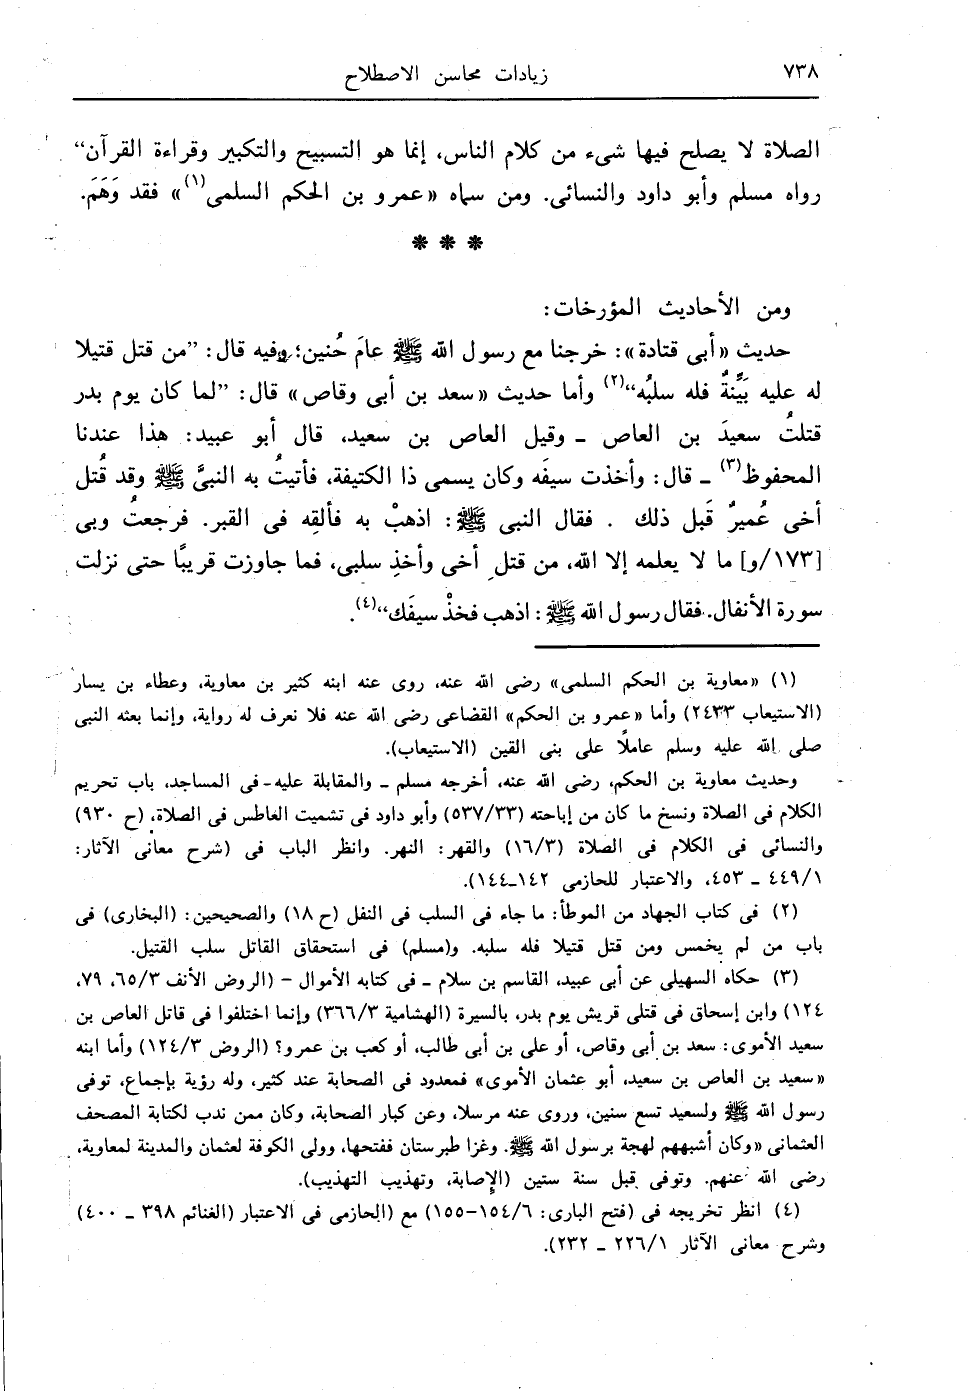 ٧٣٨
زيادات محاسن الاصطلاح
الصلاة لا يصلح فيها شىء من كلام الناس، إنما هو التسبيح والتكبير وقراءة القرآن“
رواه مسلم وأبو داود والنسائى. ومن سماه «عمرو بن الحكم السلمى(١)» فقد وَهَمَ.
* * *
ومن الأحاديث المؤرخات:
حديث «أبى قتادة»: خرجنا مع رسول الله ﷺ عامَ حُنين؛ وفيه قال: ”من قتل قتيلا
له عليه بَيِّنةٌ فله سلبُه“(٢) وأما حديث «سعد بن أبى وقاص» قال: ”لما كان يوم بدر
قتلتُ سعيدَ بن العاص ـ وقيل العاص بن سعيد، قال أبو عبيد: هذا عندنا
المحفوظ(٣) ـ قال: وأخذت سيفَه وكان يسمى ذا الكتيفة، فأتيتُ به النبىَّ ﷺ وقد قُتل
أخى عُميرٌ قَبل ذلك . فقال النبى ﷺ: اذهبْ به فألقِه فى القبر. فرجعتُ وبى
[١٧٣/و] ما لا يعلمه إلا الله، من قتلِ أخى وأخذِ سلبى، فما جاوزت قريبًا حتى نزلت
سورة الأنفال. فقال رسول الله ﷺ: اذهب فخذْ سيفَك“(٤).
(١) «معاوية بن الحكم السلمى» رضى الله عنه، روى عنه ابنه كثير بن معاوية، وعطاء بن يسار
(الاستيعاب ٢٤٣٣) وأما «عمرو بن الحكم» القضاعى رضى الله عنه فلا نعرف له رواية، وإنما بعثه النبى
صلى الله عليه وسلم عاملًا على بنى القين (الاستيعاب).
وحديث معاوية بن الحكم، رضى الله عنه، أخرجه مسلم ـ والمقابلة عليه - فى المساجد، باب تحريم
الكلام فى الصلاة ونسخ ما كان من إباحته (٥٣٧/٣٣) وأبو داود فى تشميت الغاطس فى الصلاة، (ح ٩٣٠)
والنسائى فى الكلام فى الصلاة (١٦/٣) والقهر: النهر. وانظر الباب فى (شرح معانى الآثار:
٤٤٩/١ ـ ٤٥٣، والاعتبار للحازمى ١٤٢ـ١٤٤).
(٢) فى كتاب الجهاد من الموطأ: ما جاء فى السلب فى النفل (ح ١٨) والصحيحين: (البخارى) فى
باب من لم يخمس ومن قتل قتيلا فله سلبه. و(مسلم) فى استحقاق القاتل سلب القتيل.
(٣) حكاه السهيلى عن أبى عبيد، القاسم بن سلام ـ فى كتابه الأموال - (الروض الأنف ٦٥/٣، ٧٩،
١٢٤) وابن إسحاق فى قتلى قريش يوم بدر، بالسيرة (الهشامية ٣٦٦/٣) وإنما اختلفوا فى قاتل العاص بن
سعيد الأموى: سعد بن أبى وقاص، أو على بن أبى طالب، أو كعب بن عمرو؟ (الروض ١٢٤/٣) وأما ابنه
«سعيد بن العاص بن سعيد، أبو عثمان الأموى» فمعدود فى الصحابة عند كثير، وله رؤية بإجماع، توفى
رسول الله ﷺ ولسعيد تسع سنين، وروى عنه مرسلا، وعن كبار الصحابة، وكان ممن ندب لكتابة المصحف
العثمانى «وكان أشبههم لهجة برسول الله ﷺ. وغزا طبرستان ففتحها، وولى الكوفة لعثمان والمدينة لمعاوية،
رضى الله عنهم. وتوفى قبل سنة ستين (الإصابة، وتهذيب التهذيب).
(٤) انظر تخريجه فى (فتح البارى: ١٥٤/٦-١٥٥) مع (الحازمى فى الاعتبار (الغنائم ٣٩٨ ـ ٤٠٠)
وشرح معانى الآثار ٢٢٦/١ ـ ٢٣٢).